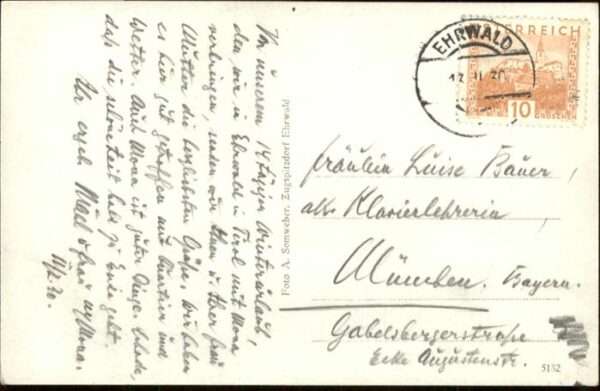 Von unserem 14 tägigen Winterurlaub,
den wir in Ehrwald in Tirol mit Mona
verbringen, senden wir Ihnen u. Ihrer Frau
Mutter die herzlichsten Grüße. Wir haben
es hier gut getroffen mit Quartier und
Wetter. Auch Mona ist guter Dinge. Schade,
daß die schöne Zeit bald zu Ende geht.
Ihr ergeb.
u. Frau u. Mona.
Foto A. Somweber, Zugspitzdorf Ehrwald
EHRWALD
ÖSTERREICH
10
GROSCHEN
Fräulein Luise Bauer,
Klavierlehrerin
München. Bayern.
Gabelsbergerstraße
Ecke Augustenstr.
5132